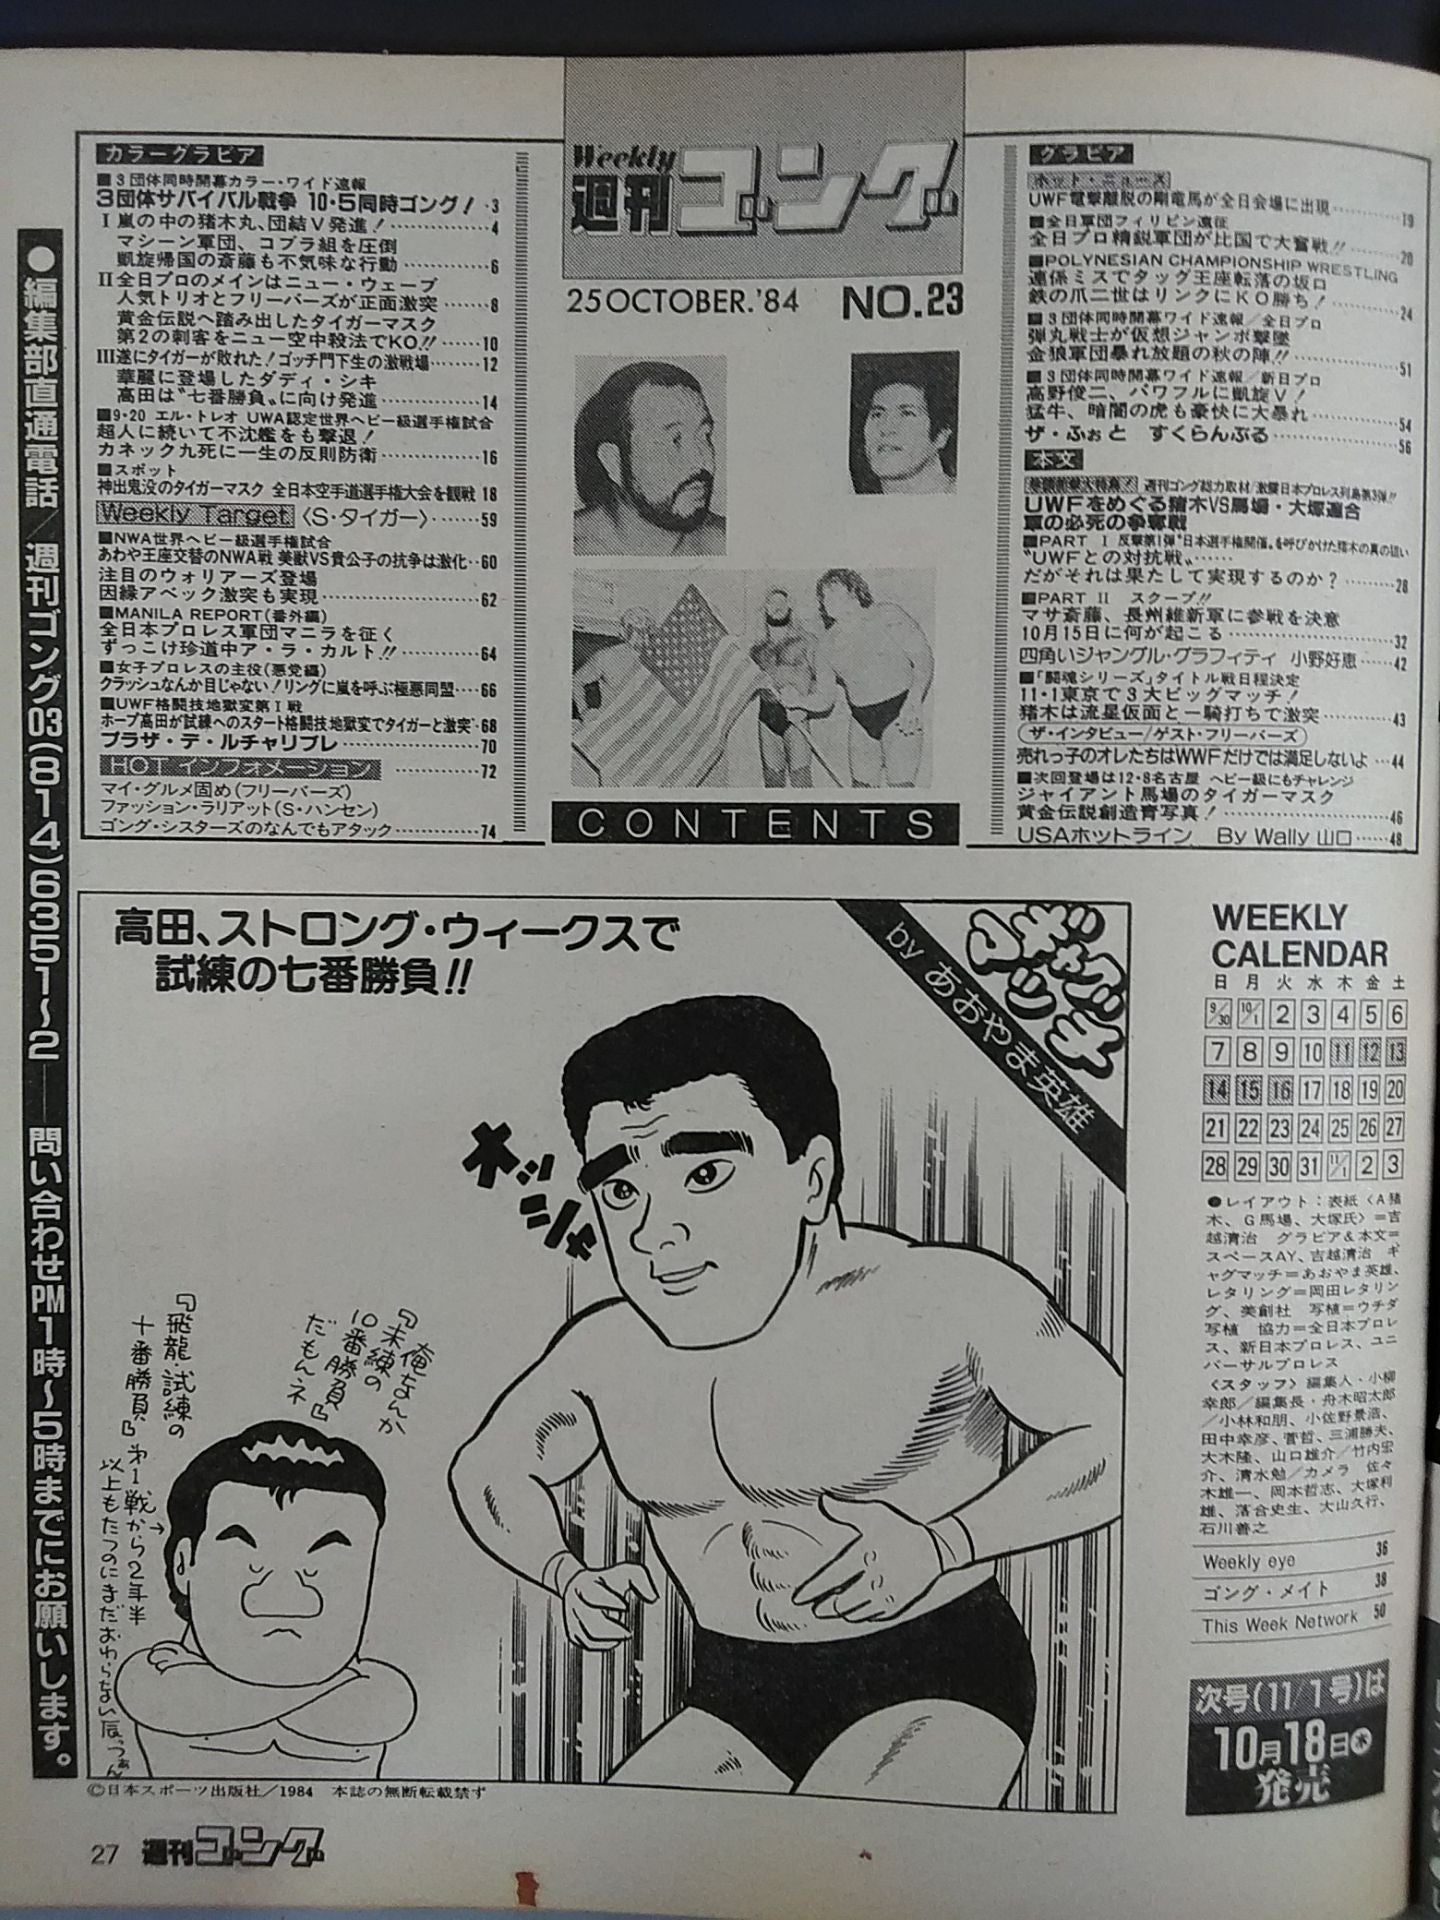 ●編集部直通電話/週刊ゴング03(814)6351〜2——問い合わせPM1時〜5時までにお願いします。
カラーグラビア
■3団体同時開幕カラー・ワイド速報
3団体サバイバル戦争 10・5同時ゴング! ・3
I 嵐の中の猪木丸、団結V発進!……………4
マシーン軍団、コブラ組を圧倒
凱旋帰国の斎藤も不気味な行動……………6
II 全日プロのメインはニュー・ウェーブ
人気トリオとフリーバーズが正面激突……8
黄金伝説へ踏み出したタイガーマスク
第2の刺客をニュー空中殺法でKO!!……10
III 遂にタイガーが敗れた!ゴッチ門下生の激戦場……12
華麗に登場したダディ・シキ
高田は“七番勝負”に向け発進……………14
■9・20 エル・トレオ UWA認定世界ヘビー級選手権試合
超人に続いて不沈艦をも撃退!
カネック九死に一生の反則防衛……………16
■スポット
神出鬼没のタイガーマスク 全日本空手道選手権大会を観戦 18
Weekly Target〈S・タイガー〉……59
■NWA世界ヘビー級選手権試合
あわや王座交替のNWA戦 美獣VS貴公子の抗争は激化‥60
注目のウォリアーズ登場
因縁アベック激突も実現……………62
■MANILA REPORT(番外編)
全日本プロレス軍団マニラを征く
ずっこけ珍道中ア・ラ・カルト!!……………64
■女子プロレスの主役(悪党編)
クラッシュなんか目じゃない!リングに嵐を呼ぶ極悪同盟‥‥66
■UWF格闘技地獄変第I戦
ホープ高田が試練へのスタート格闘技地獄変でタイガーと激突‥68
プラザ・デ・ルチャリブレ……………70
HOTインフォメーション……………72
マイ・グルメ固め(フリーバーズ)
ファッション・ラリアット(S・ハンセン)
ゴング・シスターズのなんでもアタック……………74
Weekly
週刊ゴング
25 OCTOBER.'84 NO.23
CONTENTS
グラビア
ホット・ニュース
UWF電撃離脱の剛竜馬が全日会場に出現……………19
■全日軍団フィリピン遠征
全日プロ精鋭軍団が比国で大奮戦!!……………20
■POLYNESIAN CHAMPIONSHIP WRESTLING
連係ミスでタッグ王座転落の坂口
鉄の爪二世はリンクにKO勝ち!……………24
■3団体同時開幕ワイド速報/全日プロ
弾丸戦士が仮想ジャンボ撃墜
金狼軍団暴れ放題の秋の陣!!……………51
■3団体同時開幕ワイド速報/新日プロ
高野俊二、パワフルに凱旋V!
猛牛、暗闇の虎も豪快に大暴れ……………54
ザ・ふぉと すくらんぶる……………56
本文
週刊ゴング総力取材/激震日本プロレス列島第3弾!!
UWFをめぐる猪木VS馬場・大塚連合
軍の必死の争奪戦
■PART I 反撃第1弾“日本選手権開催”を呼びかけた猪木の真の狙い
“UWFとの対抗戦”……
だがそれは果たして実現するのか?……………28
■PART II スクープ!!
マサ斎藤、長州維新軍に参戦を決意
10月15日に何が起こる……………32
四角いジャングル・グラフィティ 小野好恵……42
■「闘魂シリーズ」タイトル戦日程決定
11・1東京で3大ビッグマッチ!
猪木は流星仮面と一騎打ちで激突……………43
(ザ・インタビュー/ゲスト・フリーバーズ)
売れっ子のオレたちはWWFだけでは満足しないよ…44
■次回登場は12・8名古屋 ヘビー級にもチャレンジ
ジャイアント馬場のタイガーマスク
黄金伝説創造青写真!……………46
USAホットライン By Wally 山口……48
高田、ストロング・ウィークスで
試練の七番勝負!!
ギャグマッチ
by あおやま英雄
オッシャ
俺なんか
『未練の
10番勝負』
だもんネ
『飛龍・試練の
十番勝負』
第1戦から2年半
以上もたつのにまだおわらない辰っつぁん
©日本スポーツ出版社/1984 本誌の無断転載禁ず
27 週刊ゴング
WEEKLY
CALENDAR
日 月 火 水 木 金 土
9/30 10/1 2 3 4 5 6
7 8 9 10 11 12 13
14 15 16 17 18 19 20
21 22 23 24 25 26 27
28 29 30 31 11/1 2 3
●レイアウト:表紙〈A猪
木、G馬場、大塚氏〉=吉
越清治 グラビア&本文=
スペースAY、吉越清治 ギ
ャグマッチ=あおやま英雄、
レタリング=岡田レタリン
グ、美創社 写植=ウチダ
写植 協力=全日本プロレ
ス、新日本プロレス、ユニ
バーサルプロレス
〈スタッフ〉編集人・小柳
幸郎/編集長・舟木昭太郎
/小林和朋、小佐野景浩、
田中幸彦、菅哲、三浦勝夫、
大木隆、山口雄介/竹内宏
介、清水勉/カメラ 佐々
木雄一、岡本哲志、大塚利
雄、落合史生、大山久行、
石川善之
Weekly eye 36
ゴング・メイト 38
This Week Network 50
次号(11/1号)は
10月18日(木)
発売